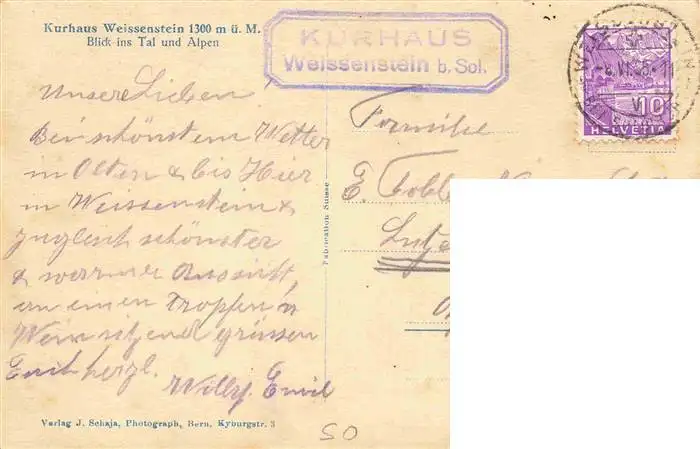 Kurhaus Weissenstein 1300 m ü. M.
Blick ins Tal und Alpen
KURHAUS
Weissenstein b. Sol.
10
HELVETIA
Unsere Lieben!
Bei schönstem Wetter
in Olten & bis Hier
in Weissenstein &
zugleich schönster
& warmer Aussicht,
an einen Tropfen
Wein sitzend grüssen
Euch herzl.
Willy. Emil
Familie
E.
Publication Suisse
Verlag J. Schaja, Photograph, Bern, Kyburgstr. 3
SO